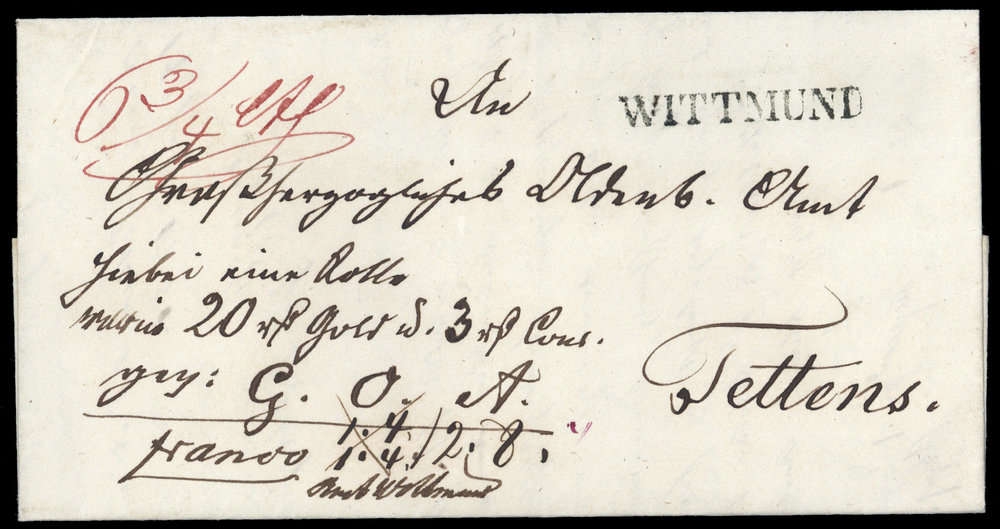 6 3/4 Lth
An
WITTMUND
Großherzogliches Oldenb. Amt
hiebei eine Rolle
worin 20 rß Gold u. 3 rß Cour.
gez: G. O. A.
Tettens.
franco 1:4 / 1:4 / 2. 8.
Amt Wittmund